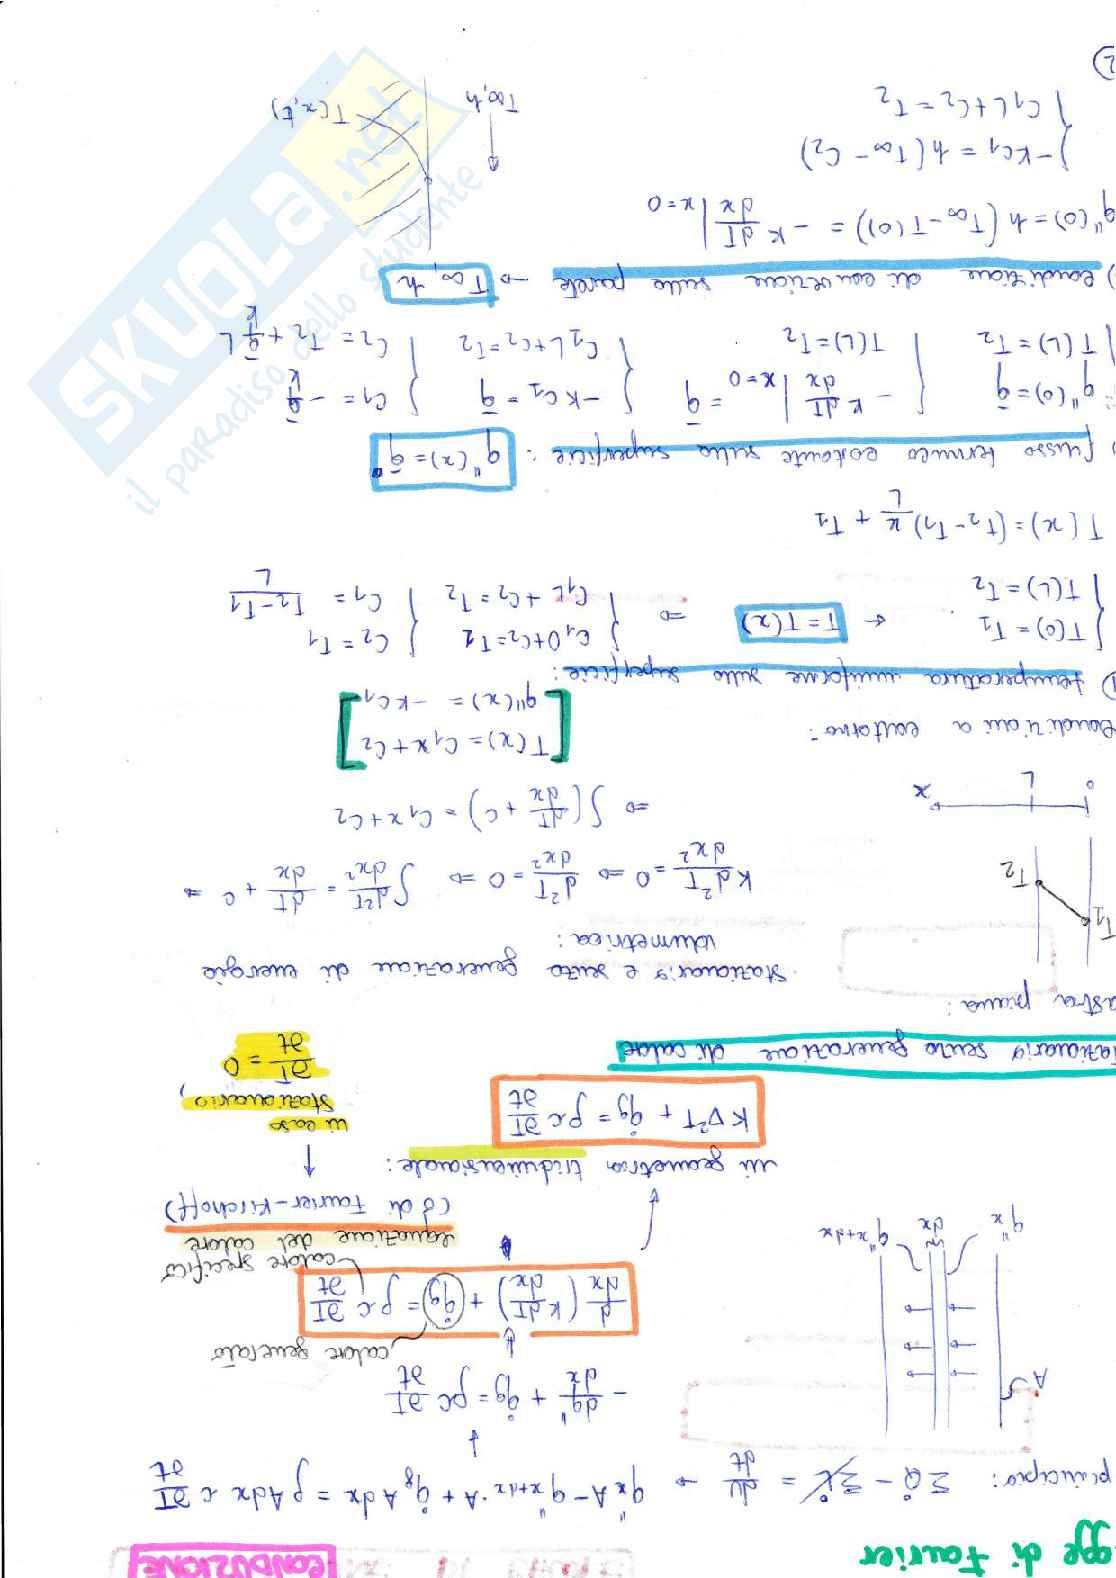 CONDUZIONE
gge di Fourier
principio: ΣQ̇ - ΣL̇ = dU/dt → q''x A - q''x+dx · A + q̇g A dx = ρ A dx c ∂T/∂t
A
- dq''/dx + q̇g = ρc ∂T/∂t
calore generato
d/dx (k dT/dx) + q̇g = ρ c ∂T/∂t
calore specifico
q''x dx q''x+dx
equazione del calore
(o di Fourier-Kirchoff)
in geometria tridimensionale:
K∇²T + q̇g = ρc ∂T/∂t
in caso
stazionario,
∂T/∂t = 0
tazionario senza generazione di calore
astra piana:
stazionario e senza generazione di energia
volumetrica:
T1
T2
K d²T/dx² = 0 ⇒ d²T/dx² = 0 ⇒ ∫ d²T/dx² = dT/dx + C ⇒
⇒ ∫(dT/dx + C) = C1x + C2
0 L x
T(x) = C1x + C2
q''(x) = -KC1
condizioni a contorno:
1) temperatura uniforme sulla superficie:
T(0) = T1
T(L) = T2
← T = T(x) ⇒
C1 0 + C2 = T1
C1L + C2 = T2
C2 = T1
C1 = T2-T1/L
T(x) = (T2-T1) x/L + T1
) flusso termico costante sulla superficie: q''(x) = q̄''
q''(0) = q̄
T(L) = T2
-K dT/dx |x=0 = q̄
T(L) = T2
-KC1 = q̄
C1L + C2 = T2
C1 = -q̄/K
C2 = T2 + q̄/K L
) condizione di convezione sulla parete → T∞, h
q''(0) = h(T∞ - T(0)) = -K dT/dx |x=0
-KC1 = h(T∞ - C2)
C1L + C2 = T2
T∞, h
T(x,t)
2)
SKUOLA.net
il paradiso dello studente